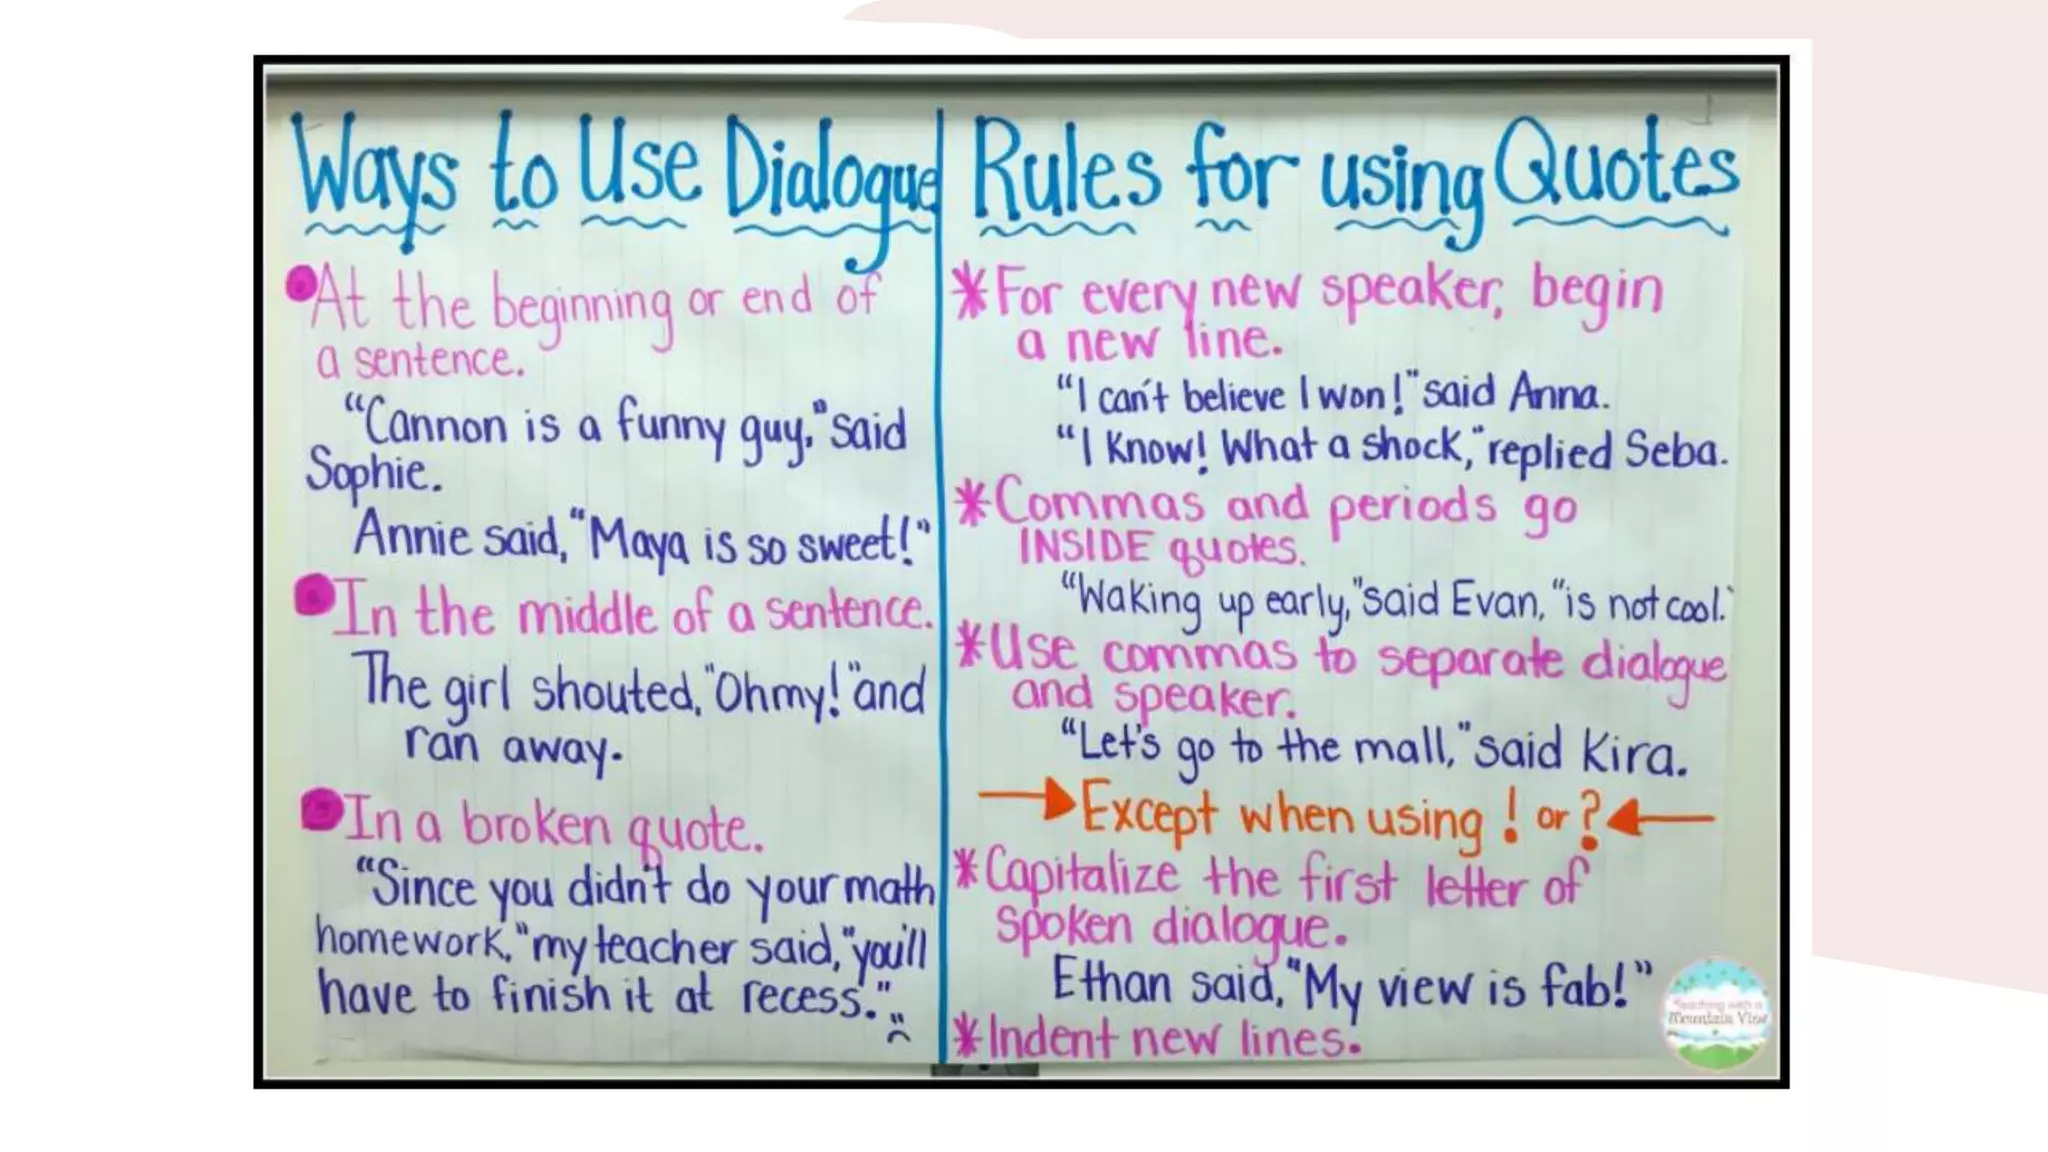 Ways to Use Dialogue
At the beginning or end of
a sentence.
"Cannon is a funny guy," said
Sophie.
Annie said, "Maya is so sweet!"
In the middle of a sentence.
The girl shouted, "Oh my!" and
ran away.
In a broken quote.
"Since you didn't do your math
homework," my teacher said, "you'll
have to finish it at recess."
Rules for using Quotes
*For every new speaker, begin
a new line.
"I can't believe I won!" said Anna.
"I know! What a shock," replied Seba.
*Commas and periods go
INSIDE quotes.
"Waking up early," said Evan, "is not cool."
*Use commas to separate dialogue
and speaker.
"Let's go to the mall," said Kira.
→Except when using ! or ?←
*Capitalize the first letter of
spoken dialogue.
Ethan said, "My view is fab!"
*Indent new lines.
Teaching with a
Mountain View